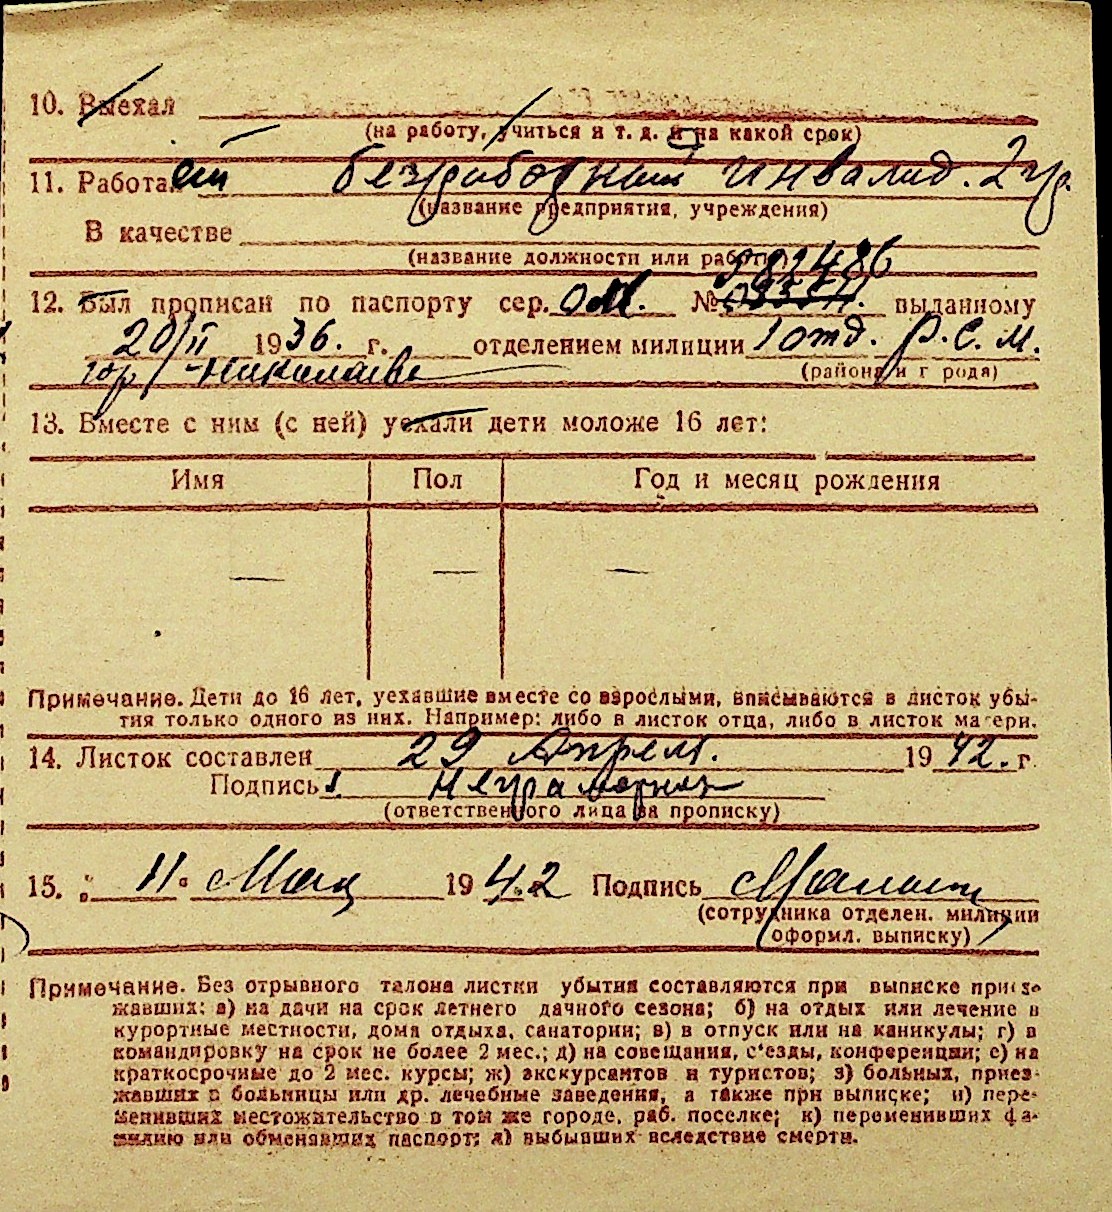 10. Выехал
(на работу, учиться и т. д. и на какой срок)
11. Работает безработный инвалид. 2 гр.
(название предприятия, учреждения)
В качестве
(название должности или работы)
282486
12. Был прописан по паспорту сер. ОМ. № выданному
20/II 1936. г. отделением милиции 1 отд. Р.С.М.
гор. Николаева (района и г рода)
13. Вместе с ним (с ней) уехали дети моложе 16 лет:
Имя Пол Год и месяц рождения
— — —
Примечание. Дети до 16 лет, уехавшие вместе со взрослыми, вписываются в листок убы-
тия только одного из них. Например: либо в листок отца, либо в листок матери.
14. Листок составлен 29 Апреля. 1942. г.
Подпись Неграмотная
(ответственного лица за прописку)
15. „ 11 " Мая 1942 Подпись
(сотрудника отделен. милиции
оформл. выписку)
Примечание. Без отрывного талона листки убытия составляются при выписке приез-
жавших: а) на дачи на срок летнего дачного сезона; б) на отдых или лечение в
курортные местности, дома отдыха, санатории; в) в отпуск или на каникулы; г) в
командировку на срок не более 2 мес.; д) на совещания, с'езды, конференции; е) на
краткосрочные до 2 мес. курсы; ж) экскурсантов и туристов; з) больных, приез-
жавших в больницы или др. лечебные заведения, а также при выписке; и) пере-
менивших местожительство в том же городе, раб. поселке; к) переменивших фа-
милию или обменявших паспорт; л) выбывших вследствие смерти.